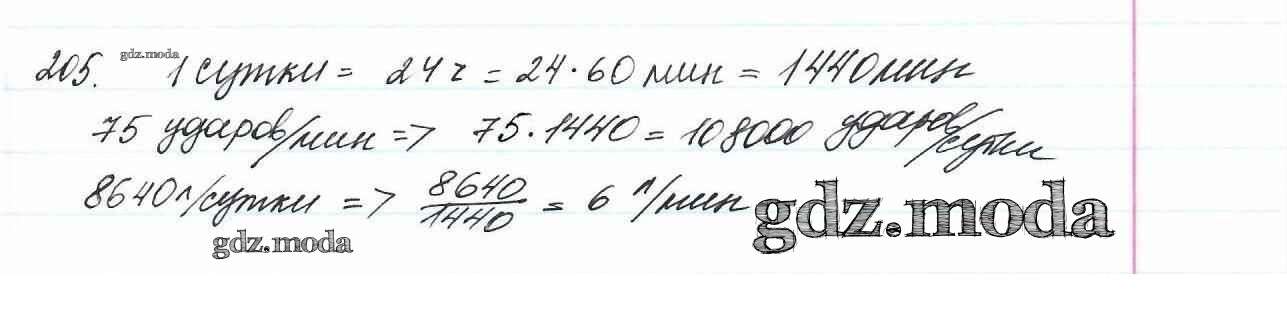 205. gdz.moda 1 сутки = 24 ч = 24 · 60 мин = 1440 мин
75 ударов/мин => 75 · 1440 = 108000 ударов/сутки
8640 л/сутки => 8640/1440 = 6 л/мин gdz.moda
gdz.moda